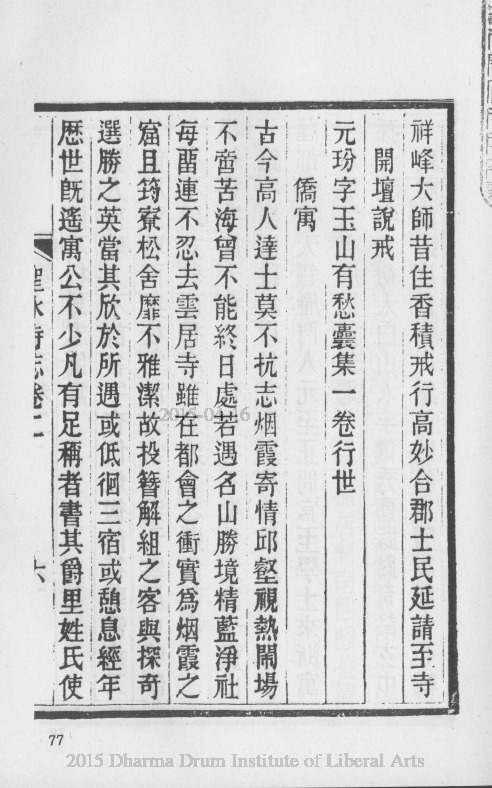 祥峰大師昔住香積戒行高妙合郡士民延請至寺
開壇說戒
元玢字玉山有愁囊集一卷行世
僑寓
古今高人達士莫不抗志烟霞寄情邱壑視熱鬧場
不啻苦海曾不能終日處若遇名山勝境精藍淨社
每畱連不忍去雲居寺雖在都會之衝實爲烟霞之
窟且筠寮松舍靡不雅潔故投簪解組之客與探奇
選勝之英當其欣於所遇或低徊三宿或憩息經年
歷世旣遙寓公不少凡有足稱者書其爵里姓氏使
聖水寺志卷二
六
2015-04-16
77
2015 Dharma Drum Institute of Liberal Arts